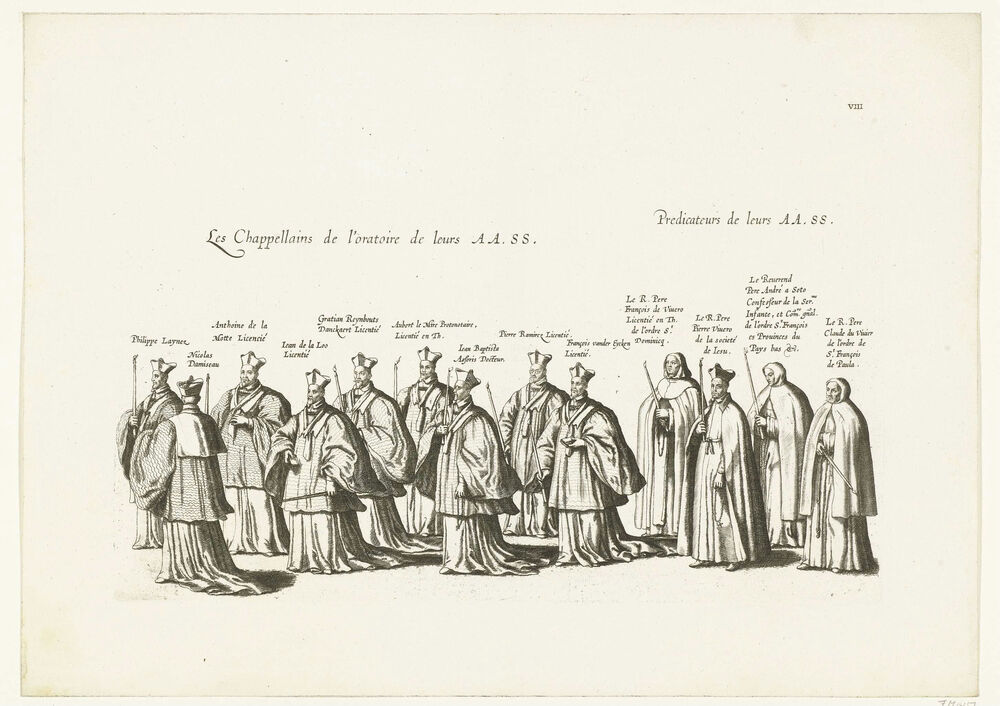 VIII
Predicateurs de leurs AA. SS.
Les Chappellains de l'oratoire de leurs AA. SS.
Philippe Laynez
Nicolas
Damiseau
Anthoine de la
Motte Licencié
Iean de la Loo
Licentié
Gratian Reynbouts
Danckaert Licentié
Aubert le Mire Protenotaire,
Licentié en Th.
Iean Baptiste
Asseris Docteur.
Pierre Ramirez Licentié.
François vander Eycken
Licentié.
Le R. Pere
François de Vivero
Licentié en Th.
de l'ordre S.t
Dominicq.
Le R. Pere
Pierre Vivero
de la societé
de Iesu.
Le Reverend
Pere André a Soto
Confesseur de la Ser.me
Infante, et Com. gñal.
de l'ordre S.t François
es Provinces du
Pays bas
Le R. Pere
Claude du Vivier
de lordre de
S.t François
de Paula.